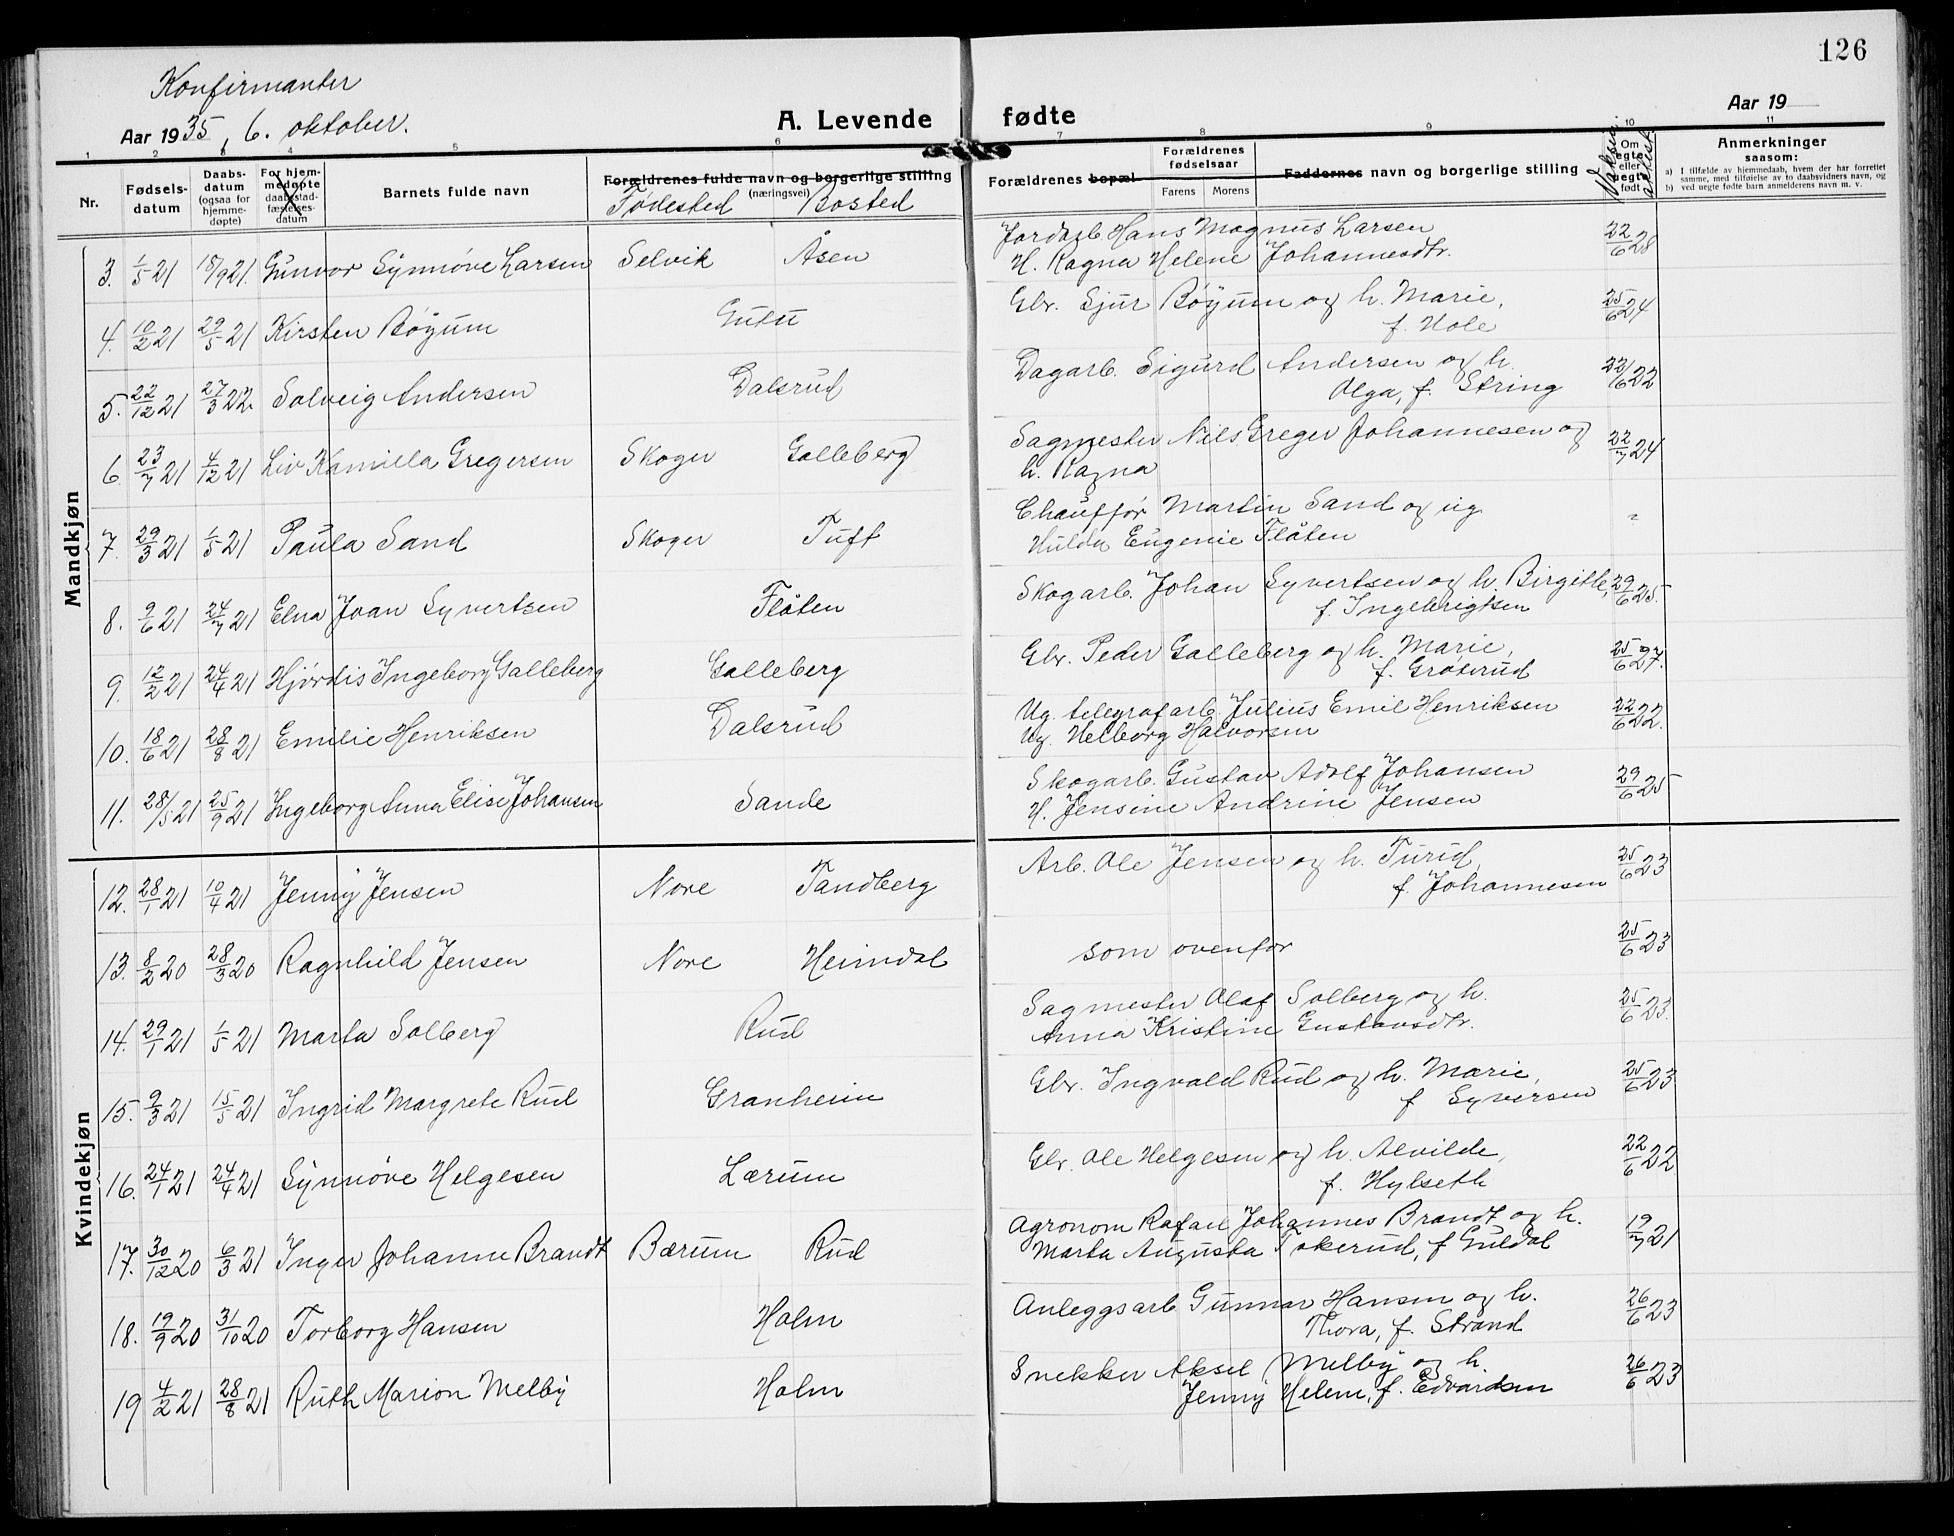 126
Konfirmanter
Aar 1935, 6. oktober.
A. Levende fødte
Aar 19
1 2 3 4 5 6 7 8 9 10 11
Nr.
Fødsels-datum
Daabs-datum (ogsaa for hjemme-døpte)
For hjem-medøpte daabsstad-fæstelses-datum
Barnets fulde navn
Forældrenes fulde navn og borgerlige stilling (næringsvei)
Fødested Bosted
Forældrenes bopæl
Forældrenes fødselsaar
Farens Morens
Faddernes navn og borgerlige stilling
Om egte eller uegte født
Vaksin. attest
Anmerkninger
saasom:
a) I tilfælde av hjemmedaab, hvem der har forrettet samme, med tilføielse av to daabsvidners navn, og
b) ved uegte fødte barn anmelderens navn m. v.
Mandkjøn
3. 1/5 21 18/9 21. Gunvor Synnøve Larsen Selvik Åsen Jordarb. Hans Magnus Larsen 22/6 28
H. Ragna Helene Johannesdtr.
4. 10/2 21 29/5 21 Kirsten Bøyum Gutu Gbr. Sjur Bøyum og h. Marie, 25/6 24
f. Hole
5. 22/12 21 27/3 22. Solveig Andersen Dalsrud Dagarb. Sigurd Andersen og h. 22/6 22
Olga, f. String
6. 23/7 21 4/12 21 Liv Kamilla Gregersen Skoger Galleberg Sagmester Nils Greger Johannesen og 22/7 24
h. Ragna
7. 29/3 21 1/5 21 Paula Sand Skoger Tuft Chauffør Martin Sand og ug
Hulda Eugenie Flåten
8. 9/6 21 24/7 21 Elna Joan Syvertsen Flåten Skogarb. Johan Syvertsen og h. Birgitte, 29/6 25.
f. Ingebrigtsen
9. 12/2 21 24/4 21 Hjørdis Ingeborg Galleberg Galleberg Gbr. Peder Galleberg og h. Marie, 25/6 27.
f. Grøterud
10. 18/6 21 28/8 21 Emilie Henriksen Dalsrud Ug. telegrafarb. Julius Emil Henriksen 22/6 22.
Ug. Helborg Halvorsen
11. 28/5 21 25/9 21 Ingeborg Anna Elise Johansen Sande Skogarb. Gustav Adolf Johansen 29/6 25
H. Jensine Andrine Jensen
Kvindekjøn
12. 28/1 21 10/4 21 Jenny Jensen Nore Tandberg Arb. Ole Jensen og h. Turid, 25/6 23
f. Johannesen
13. 8/2 20 28/3 20 Ragnhild Jensen Nore Heimdal som ovenfor 25/6 23
14. 29/1 21 1/5 21 Marta Solberg Rud Sagmester Olaf Solberg og h. 25/6 23.
Anna Kristine Gustavsdtr.
15. 9/3 21 15/5 21 Ingrid Margrete Rud Granheim Gbr. Ingvald Rud og h. Marie, 25/6 23
f Syversen
16. 24/1 21 24/4 21 Synnøve Helgesen Lærum Gbr. Ole Helgesen og h. Alvilde, 22/6 22
f. Hylseth
17. 30/12 20 6/3 21 Inger Johanne Brandt Bærum Rud Agronom Rafael Johannes Brandt og h. 19/7 21
Marta Augusta Tokerud, f Guldal
18. 19/9 20 31/10 20 Torborg Hansen Holm Anleggsarb Gunnar Hansen og h. 26/6 23
Thora, f. Strand
19 4/2 21 28/8 21 Ruth Marion Melby Holm Snekker Aksel Melby og h. 26/6 23
Jenny Helene, f. Edvardsen